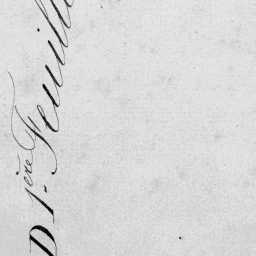 D 1.ère Feuille